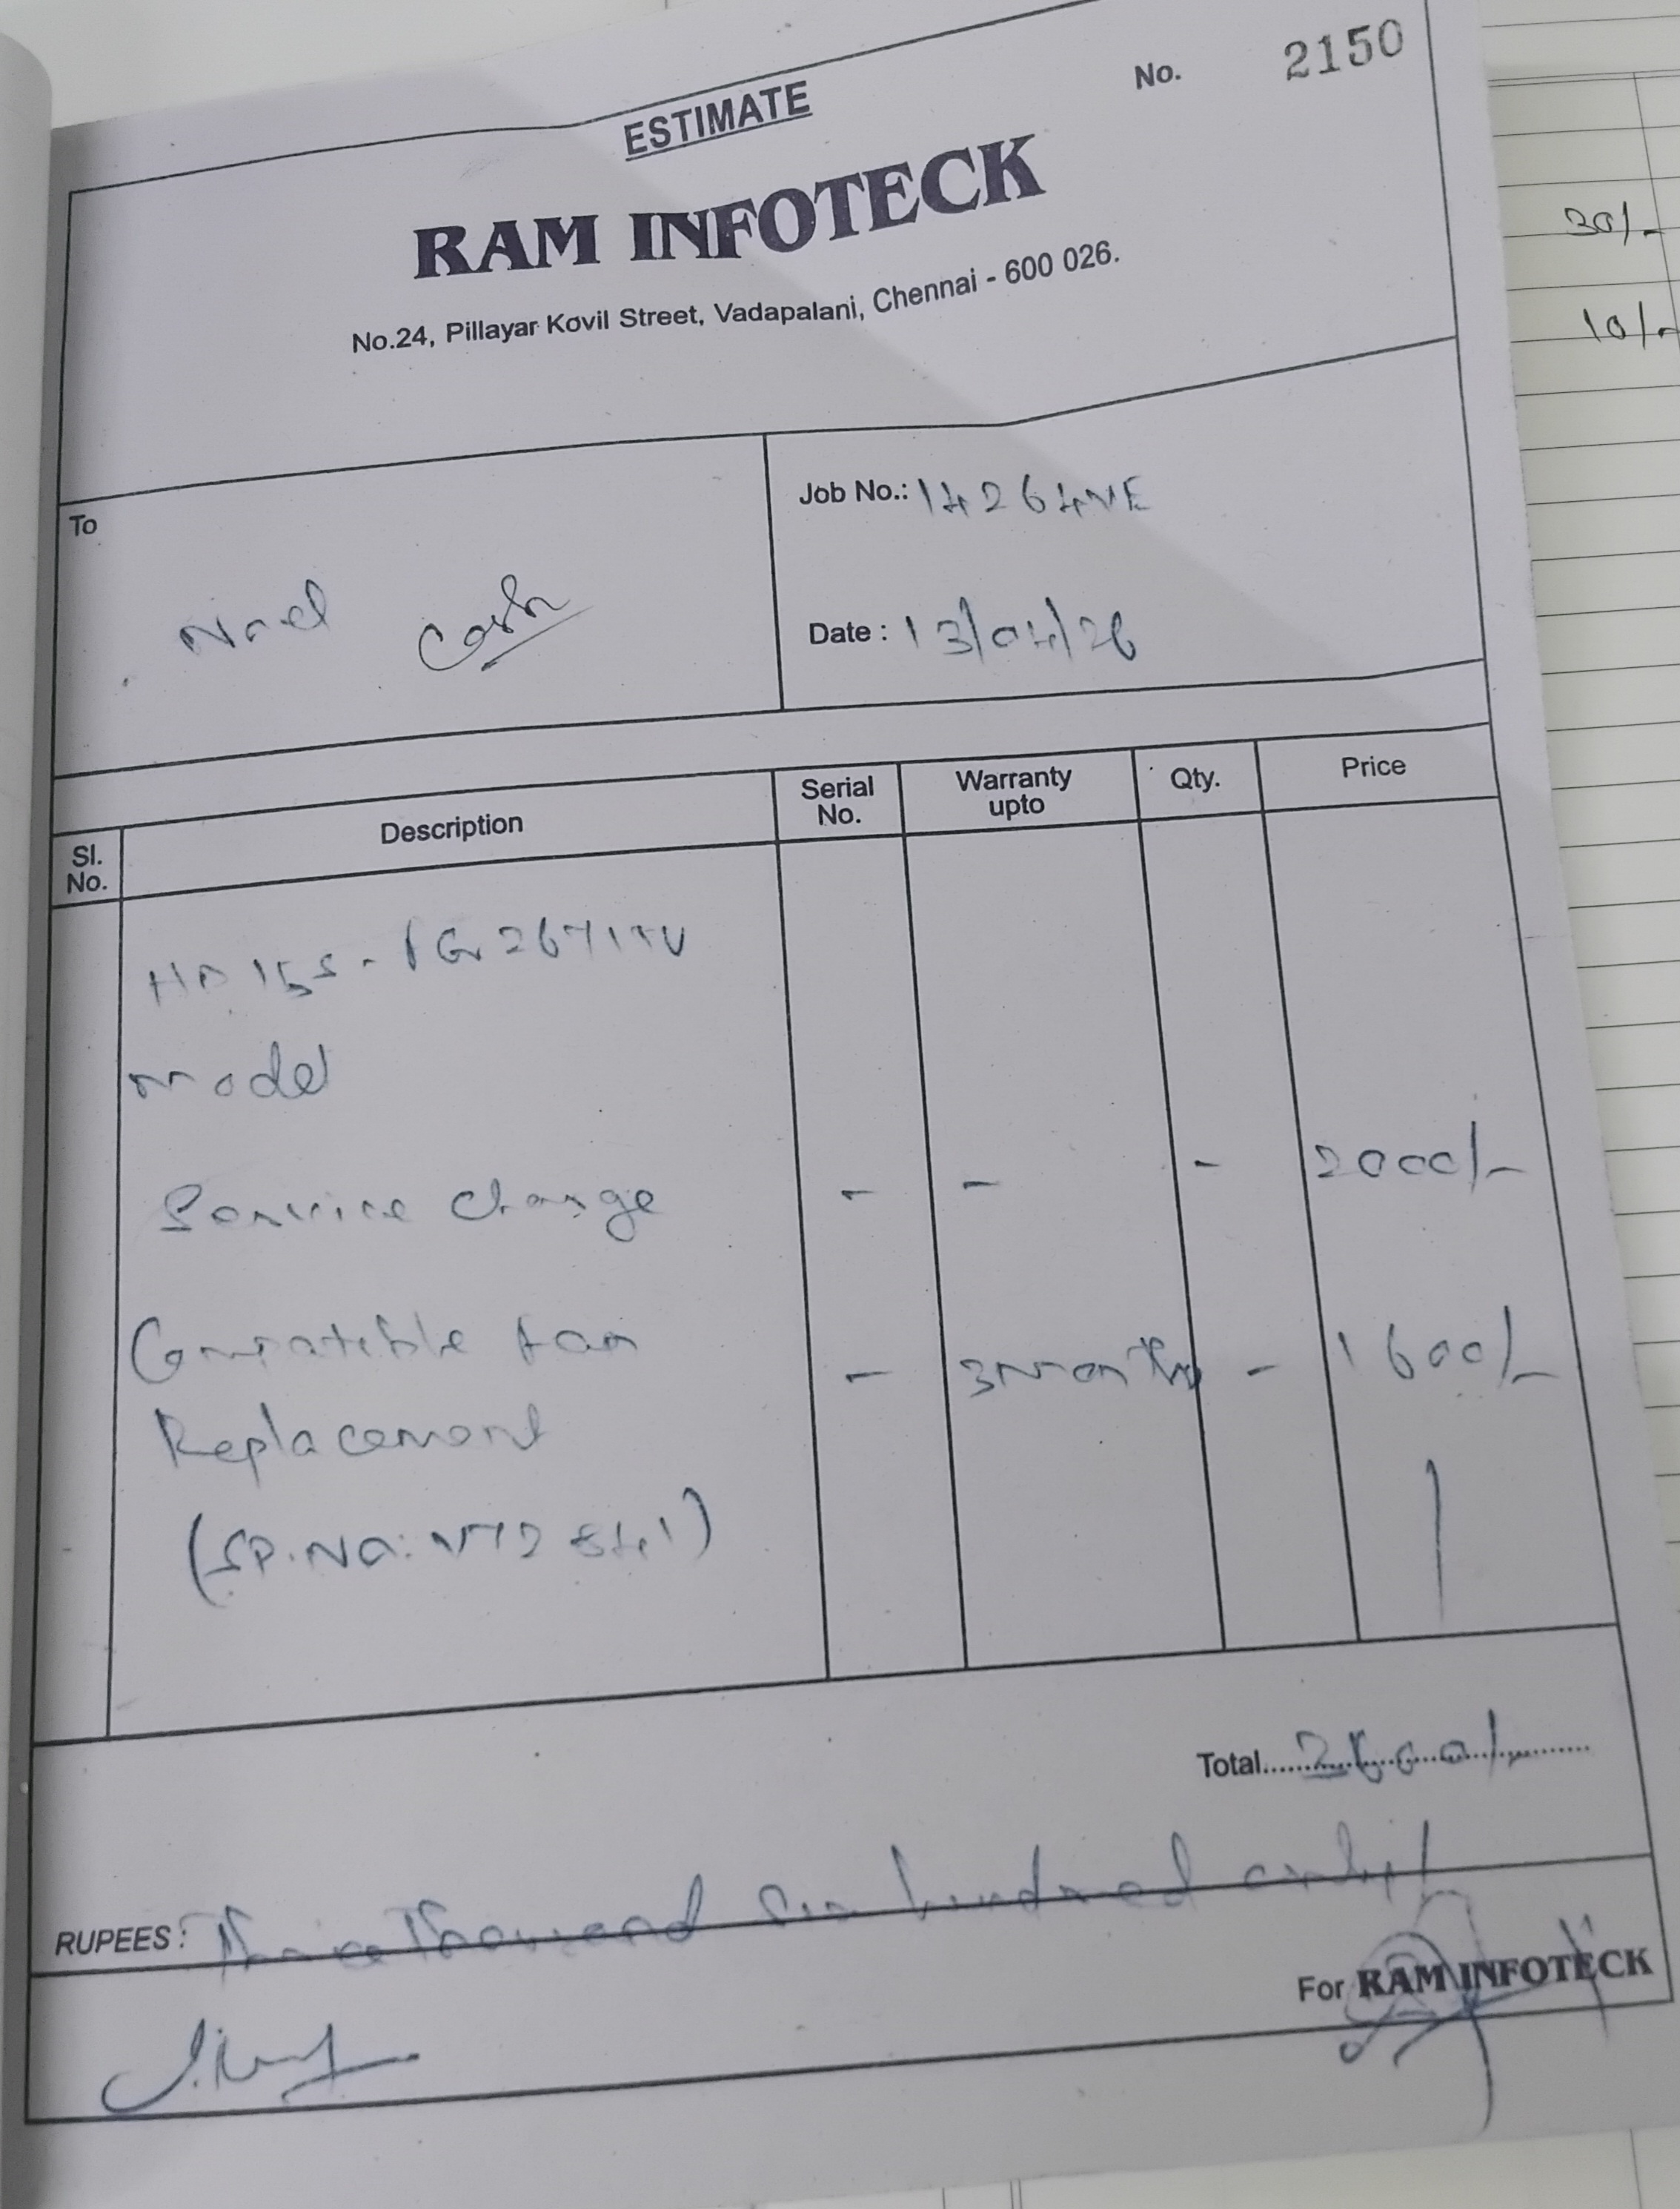 ESTIMATE
No. 2150
RAM INFOTECK
No.24, Pillayar Kovil Street, Vadapalani, Chennai - 600 026.
30/-
10/-
To
Cash
Job No.: 14264NE
Date : 13/04/26
Sl. No. Description Serial No. Warranty upto Qty. Price
HP 15s-
model
Service charge - - - 2000/-
Compatible fan - 3 months - 1600/-
Replacement
(SP.NO:
Total
RUPEES: Thousand Six hundred only/
For RAM INFOTECK